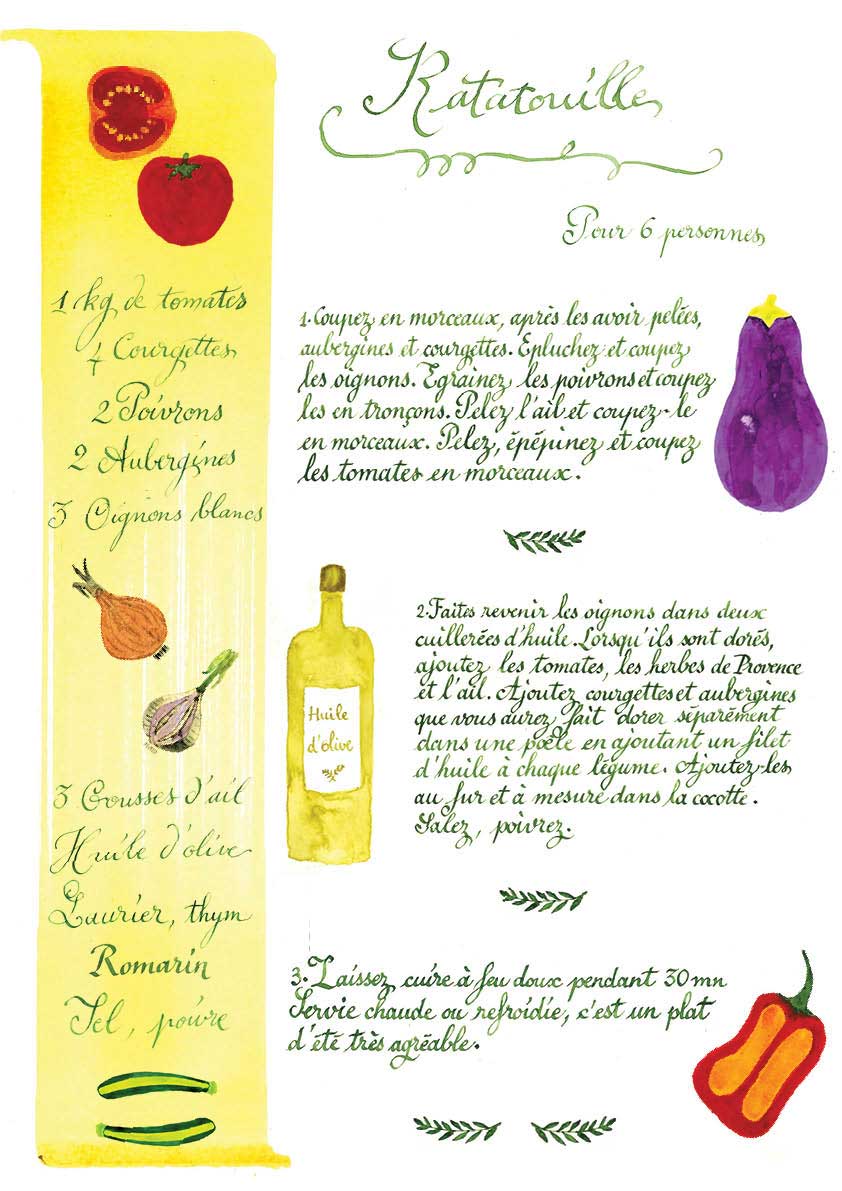 Ratatouille
Pour 6 personnes
1 kg de tomates
4 Courgettes
2 Poivrons
2 Aubergines
3 Oignons blancs
3 Gousses d'ail
Huile d'olive
Laurier, thym
Romarin
Sel, poivre
1. Coupez en morceaux, après les avoir pelées,
aubergines et courgettes. Epluchez et coupez
les oignons. Egrainez les poivrons et coupez
les en tronçons. Pelez l'ail et coupez-le
en morceaux. Pelez, épépinez et coupez
les tomates en morceaux.
Huile
d'olive
2. Faites revenir les oignons dans deux
cuillerées d'huile. Lorsqu'ils sont dorés,
ajoutez les tomates, les herbes de Provence
et l'ail. Ajoutez courgettes et aubergines
que vous aurez fait dorer séparément
dans une poêle en ajoutant un filet
d'huile à chaque légume. Ajoutez-les
au fur et à mesure dans la cocotte.
Salez, poivrez.
3. Laissez cuire à feu doux pendant 30 mn
Servie chaude ou refroidie, c'est un plat
d'été très agréable.